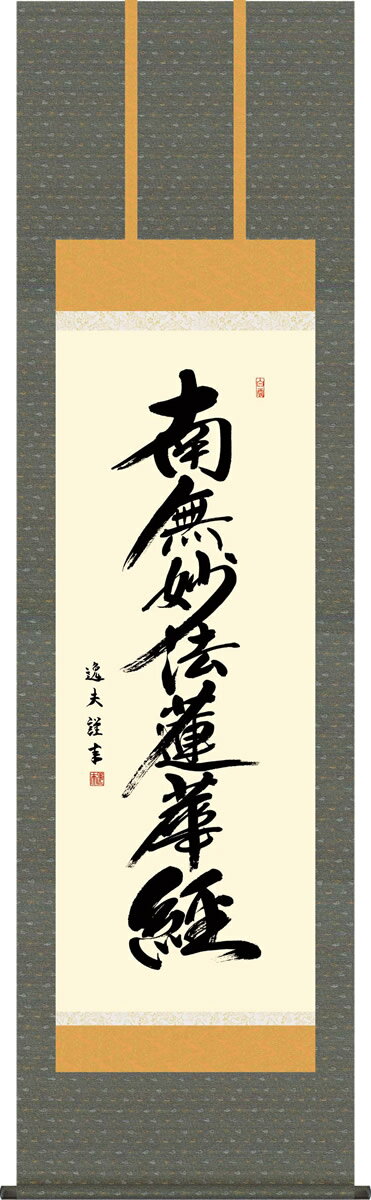 南無妙法蓮華經
逸夫謹書